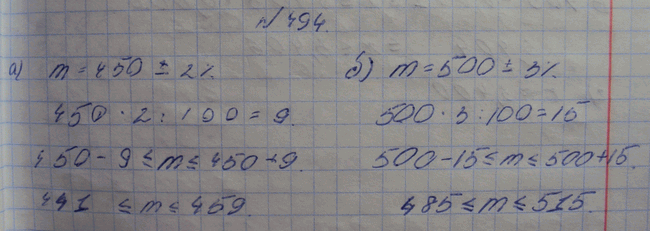 №494.
а) m = 450 ± 2%.
450 · 2 : 100 = 9.
450 - 9 ≤ m ≤ 450 + 9.
441 ≤ m ≤ 459.
б) m = 500 ± 3%.
500 · 3 : 100 = 15
500 - 15 ≤ m ≤ 500 + 15.
485 ≤ m ≤ 515.